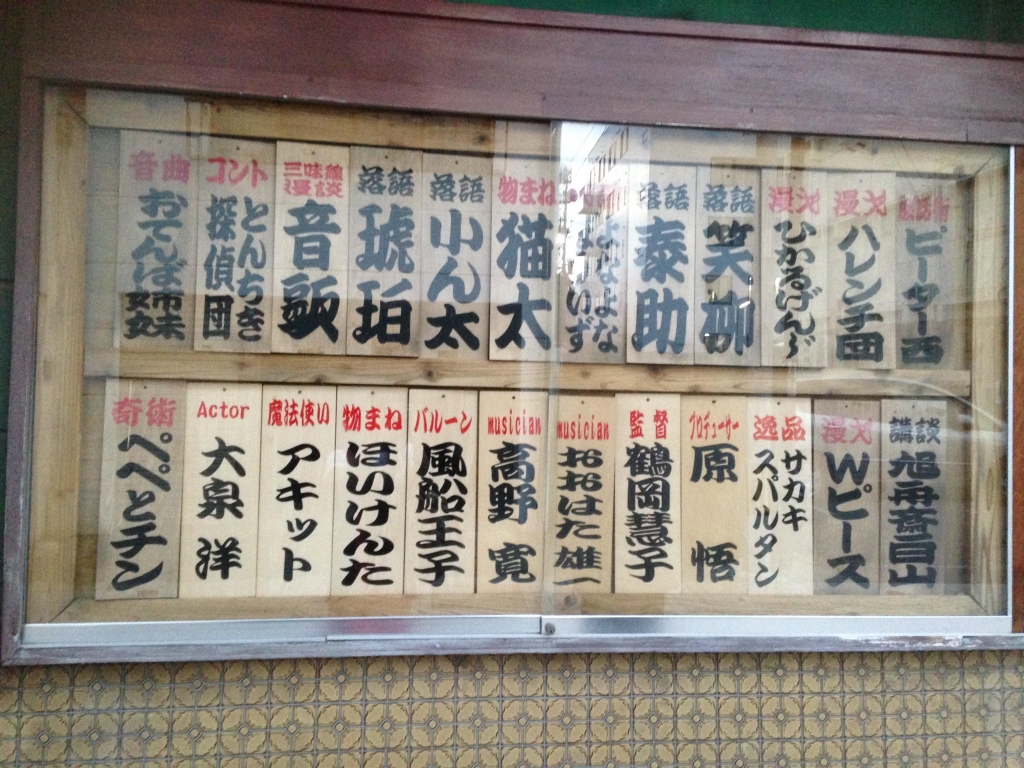 音曲 おてんば姉妹
コント とんちき探偵団
三味線漫談 音
落語 琥珀
落語 小ん太
物まね 猫太
落語 泰助
落語 笑柳
漫才 ひかるげんじ
漫才 ハレンチ団
ピーター西
奇術 ペペとチン
Actor 大泉 洋
魔法使い アキット
物まね ほいけんた
バルーン 風船王子
musician 高野 寛
musician おおはた雄一
監督 鶴岡慧子
プロデューサー 原 悟
逸品 サカキスパルタン
漫才 Wピース
講談 旭舟斎白山